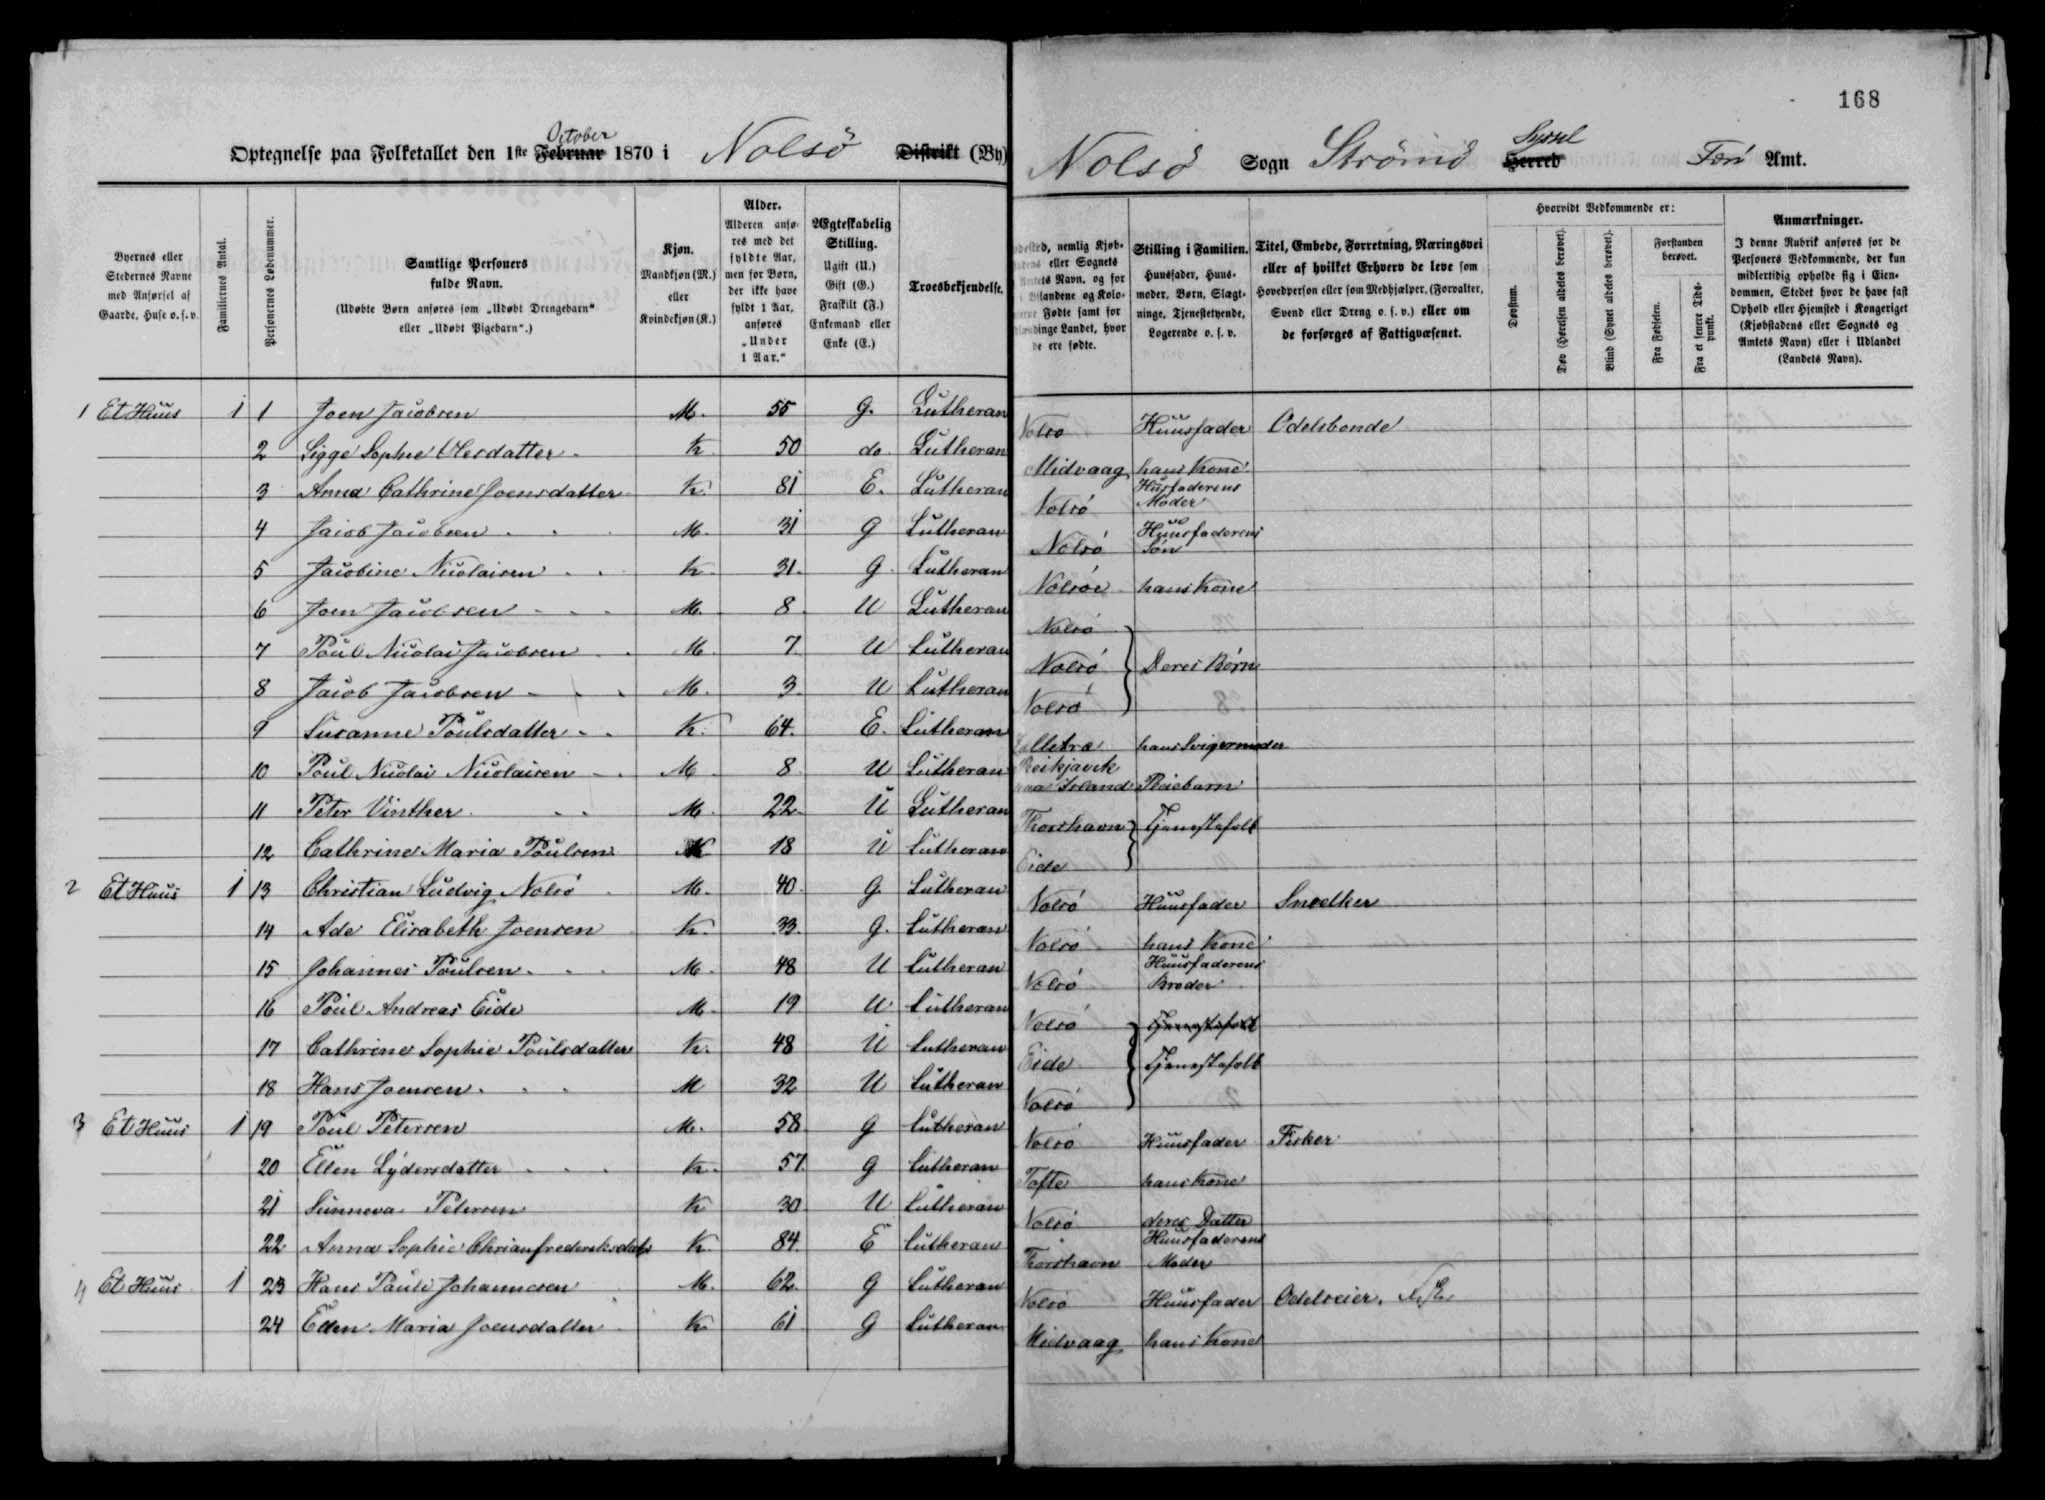 168
October
Optegnelse paa Folketallet den 1ste Februar 1870 i Nolsö Distrikt (By)
Nolsö Sogn Strömö Syssel Herred Færö Amt.
Byernes eller Stedernes Navne med Anførsel af Gaarde, Huse o. s. v.
Familiernes Antal.
Personernes Løbenummer.
Samtlige Personers fulde Navn.
(Udøbte Børn anføres som „Udøbt Drengebarn“ eller „Udøbt Pigebarn“.)
Kjøn.
Mandkjøn (M.) eller Kvindekjøn (K.)
Alder.
Alderen anføres med det fyldte Aar, men for Børn, der ikke have fyldt 1 Aar, anføres „Under 1 Aar.“
Ægteskabelig Stilling.
Ugift (U.) Gift (G.) Fraskilt (F.) Enkemand eller Enke (E.)
Troesbekjendelse.
nemlig Kjøb- eller Sognets Navn, og for Bilandene og Kolo- Fødte samt for Landet, hvor de ere fødte.
Stilling i Familien.
Huusfader, Huusmoder, Børn, Slægtninge, Tjenestetyende, Logerende o. s. v.
Titel, Embede, Forretning, Næringsvei eller af hvilket Erhverv de leve som Hovedperson eller som Medhjælper, (Forvalter, Svend eller Dreng o. s. v.) eller om de forsørges af Fattigvæsenet.
Hvorvidt Vedkommende er:
Døvstum.
Døv (Hørelsen aldeles berøvet).
Blind (Synet aldeles berøvet).
Forstanden berøvet.
Fra Fødselen.
Fra et senere Tidspunkt.
Anmærkninger.
I denne Rubrik anføres for de Personers Vedkommende, der kun midlertidig opholde sig i Eiendommen, Stedet hvor de have fast Ophold eller Hjemsted i Kongeriget (Kjøbstadens eller Sognets og Amtets Navn) eller i Udlandet (Landets Navn).
1 Et Huus 1 1 Joen Jacobsen M. 55 G. Lutheran Nolsö Huusfader Odelsbonde
2 Sigge Sophie Olesdatter K. 50 do. Lutheran Midvaag hans Kone
3 Anna Cathrine Joensdatter K. 81 E. Lutheran Nolsö Husfaderens Moder
4 Jacob Jacobsen M. 31 G Lutheran Nolsö Huusfaderens Sön
5 Jacobine Nicolaisen K. 31. G. Lutheran Nolsöe hans Kone
6 Joen Jacobsen M. 8 U Lutheran Nolsö
7 Poul Nicolai Jacobsen M. 7 U Lutheran Nolsö Deres Börn
8 Jacob Jacobsen M. 3 U Lutheran Nolsö
9 Susanne Poulsdatter K. 64. E. Lutheran hans Svigermoder
10 Poul Nicolai Nicolaisen M 8 U Lutheran Reikjavik paa Island Pleiebarn
11 Peter Vinther M. 22 U Lutheran Thorshavn Tjenestefolk
12 Cathrine Maria Poulsen K 18 U Lutheran Eide
2 Et Huus 1 13 Christian Ludvig Nolsö M. 40 G. Lutheran Nolsö Huusfader Snedker
14 Ade Elisabeth Joensen K. 33. G. Lutheran Nolsö hans Kone
15 Johannes Poulsen M. 48 U Lutheran Nolsö Huusfaderens Broder
16 Poul Andreas Eide M. 19 U Lutheran Nolsö Tjenestefolk
17 Cathrine Sophie Poulsdatter K. 48 U Lutheran Eide Tjenestefolk
18 Hans Joensen M 32 U Lutheran Nolsö
3 Et Huus 1 19 Poul Petersen M. 58 G Lutheran Nolsö Huusfader Fisker
20 Ellen Lydersdatter K. 57 G Lutheran Tofte hans Kone
21 Sunneva Petersen K 30 U Lutheran Nolsö deres Datter
22 Anna Sophie Chrianfrederiksdatr K. 84 E Lutheran Thorshavn Huusfaderens Moder
4 Et Huus 1 23 Hans Pauli Johannesen M. 62 G Lutheran Nolsö Huusfader Odelseier.
24 Ellen Maria Joensdatter K. 61 G Lutheran Midvaag hans Kone